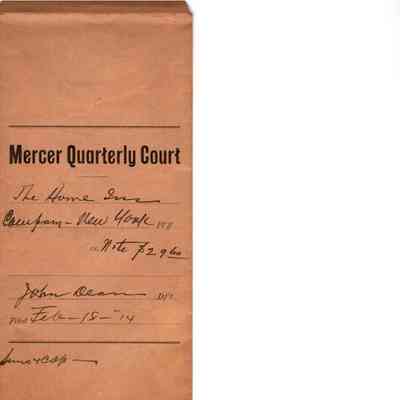 Mercer Quarterly Court
The Home Ins
Company - New York Pl'f
Note $29.60
John Dean Df't
Filed Feb - 18 - '14